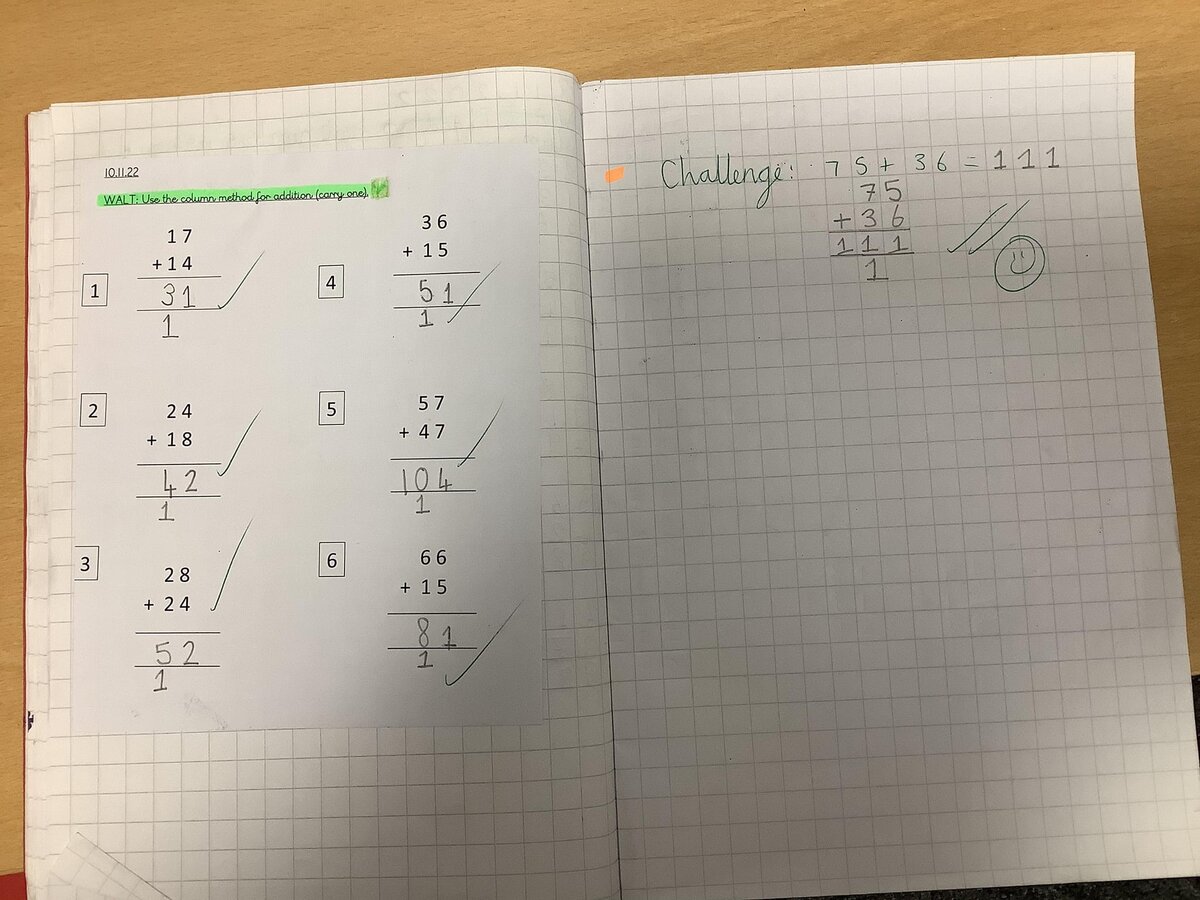 10.11.22
WALT: Use the column method for addition (carry one).
1
17
+14
31
1
2
24
+ 18
42
1
3
28
+ 24
52
1
4
36
+ 15
51
1
5
57
+ 47
104
1
6
66
+ 15
81
1
Challenge: 75 + 36 = 111
75
+36
111
1